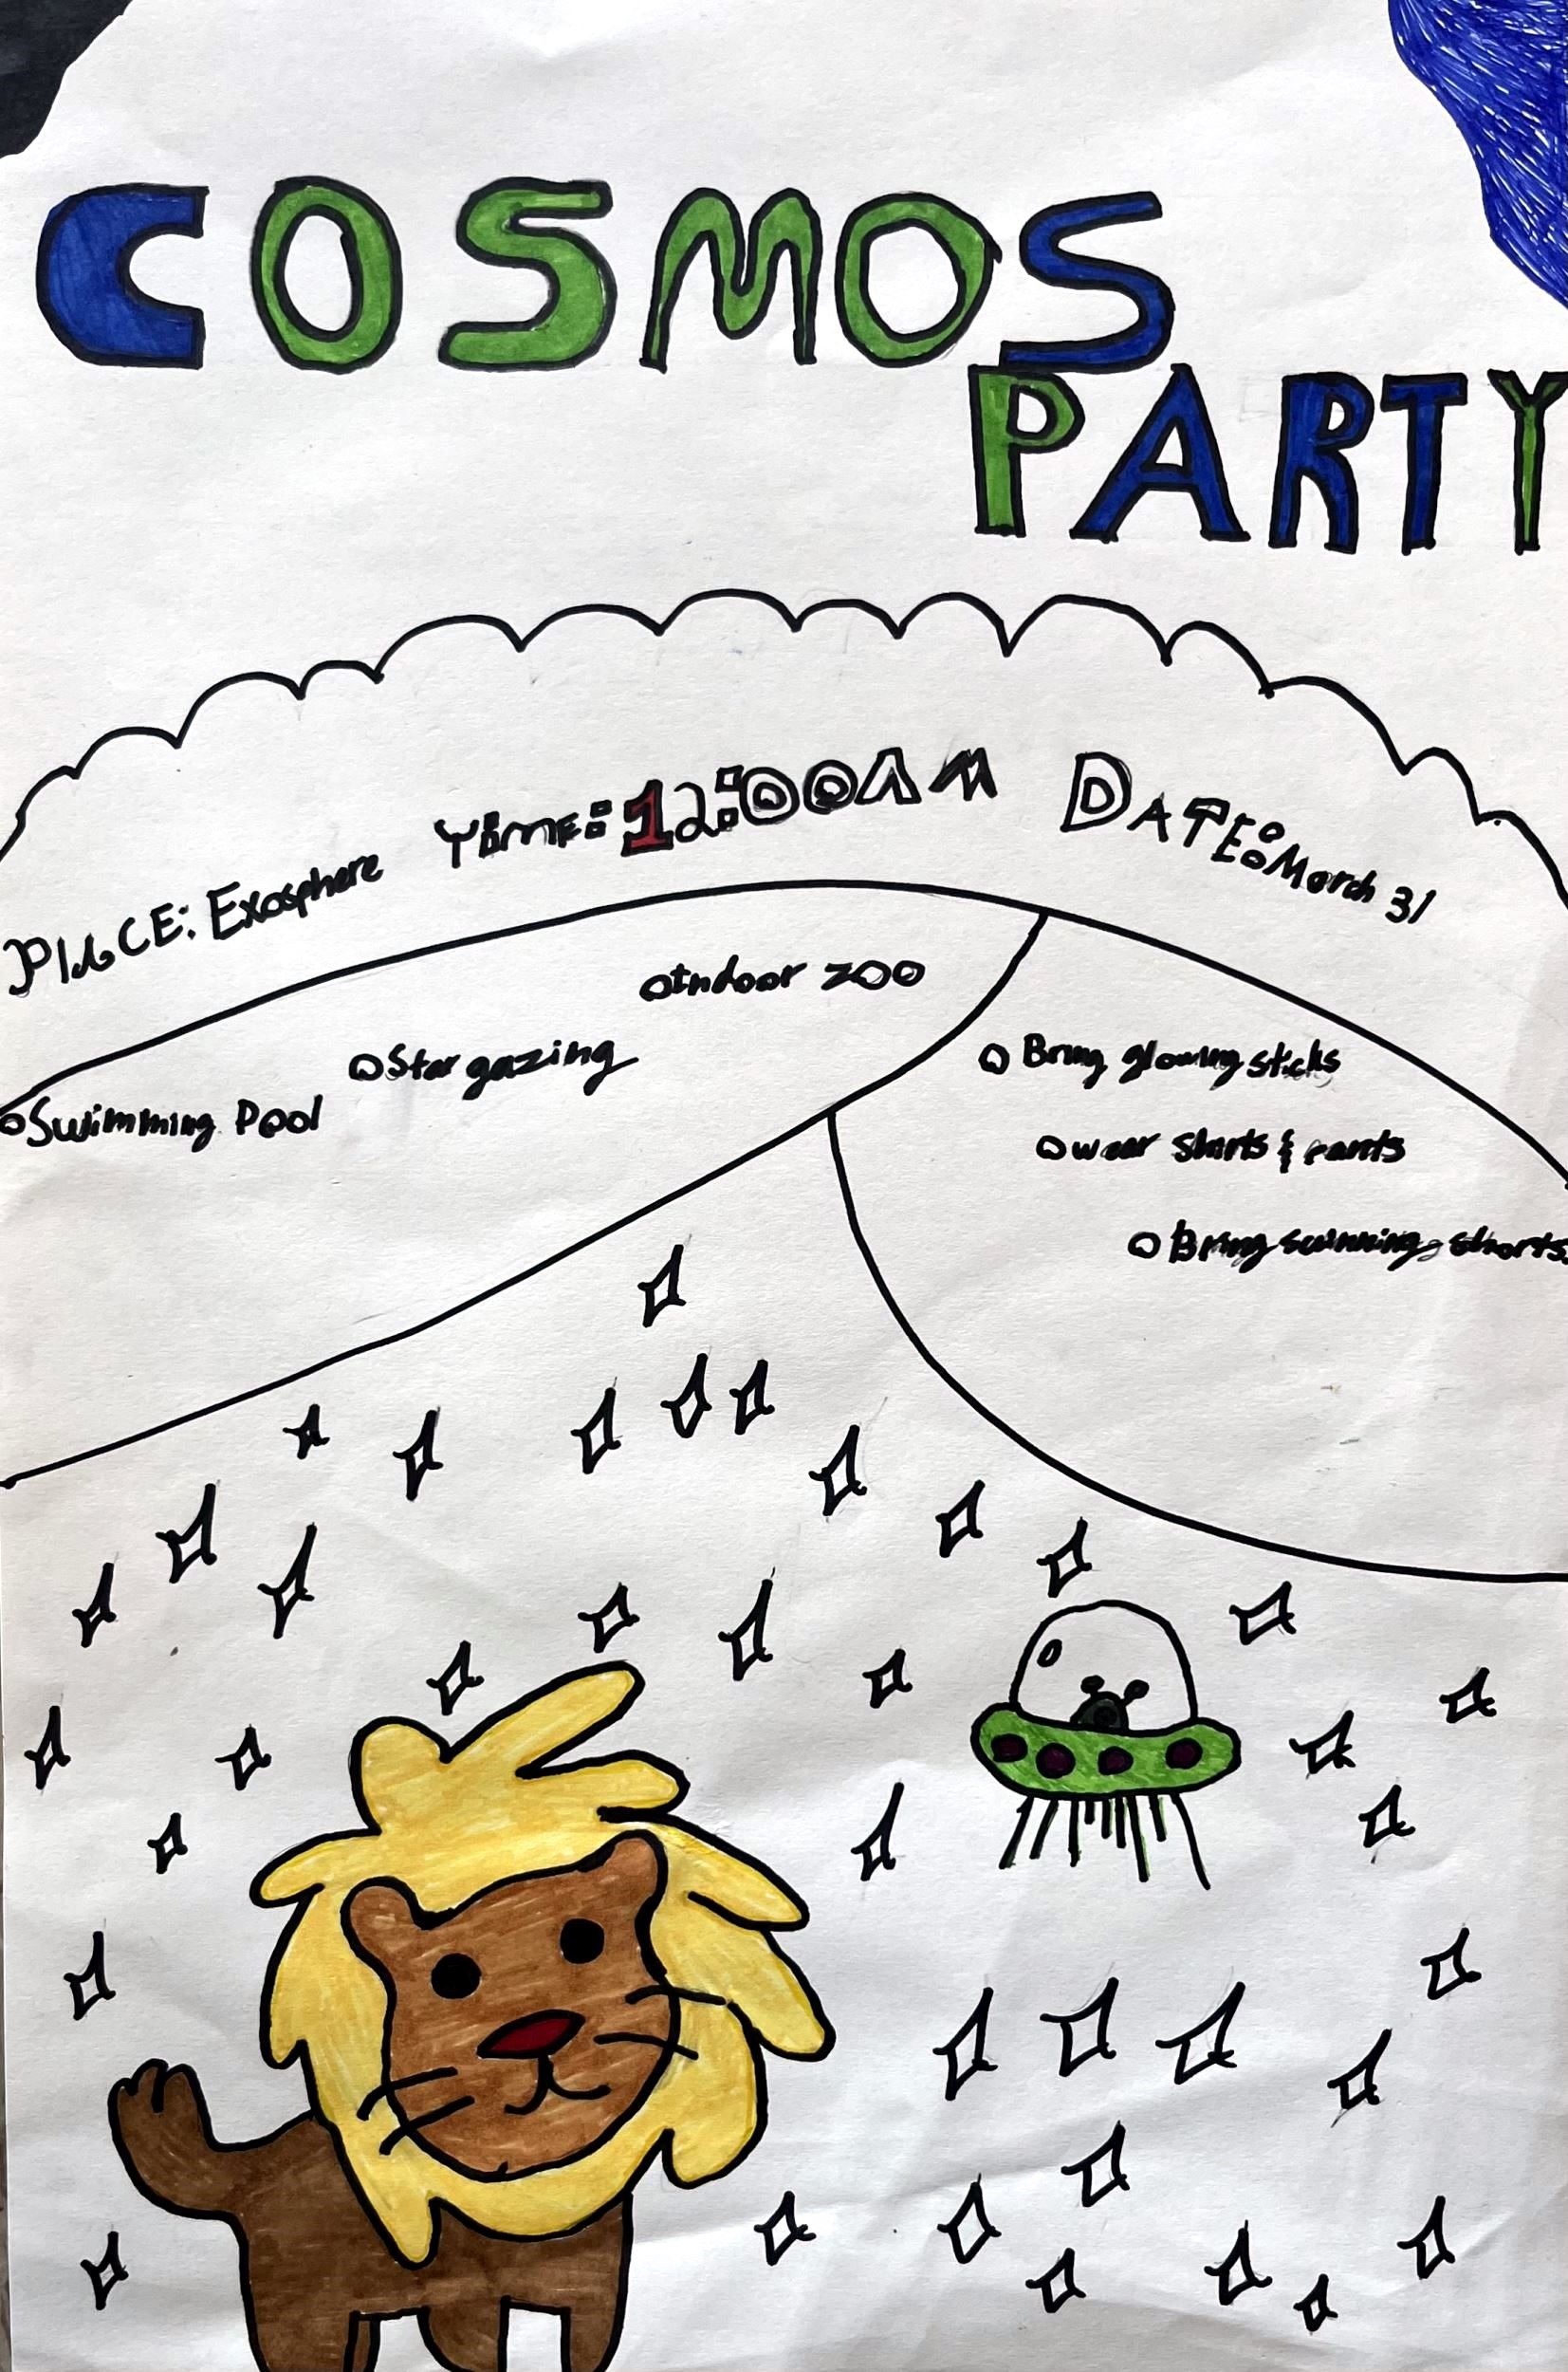 COSMOS
PARTY
PlACE: Exosphere
TiME: 12:00AM
DATE: March 31
Indoor zoo
Star gazing
Swimming Pool
Bring glowing sticks
wear shirts & pants
Bring swimming shorts